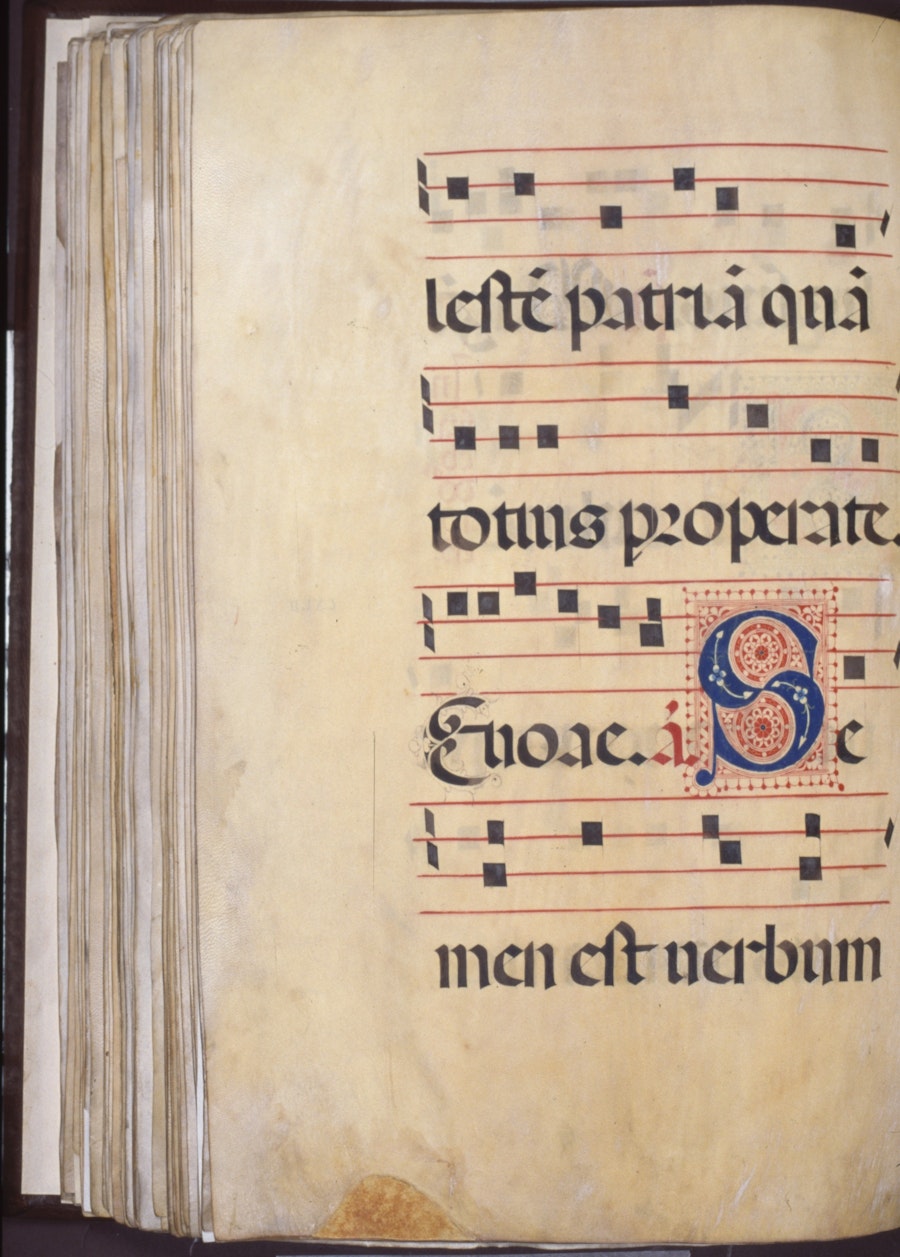 lestē patriā quā
totius properate.
Euoae. a. Se
men est uerbum